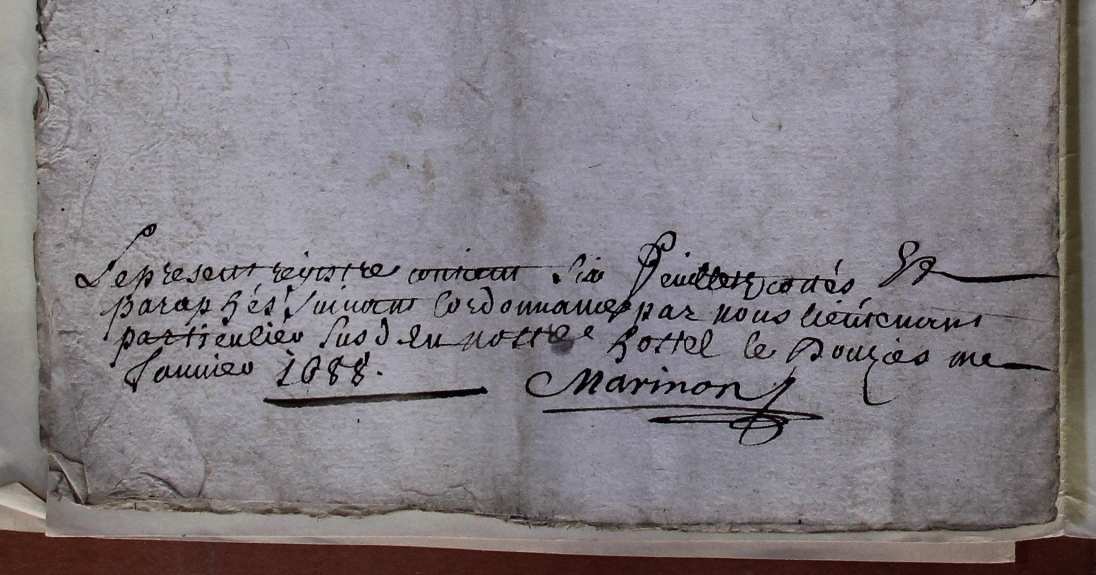 Le present registre contient six feuillets cottés Et
paraphés suivant l'ordonnance par nous lieutenant
particulier susd En nostre hostel le Douzies me
Januier 1688.
Marinon